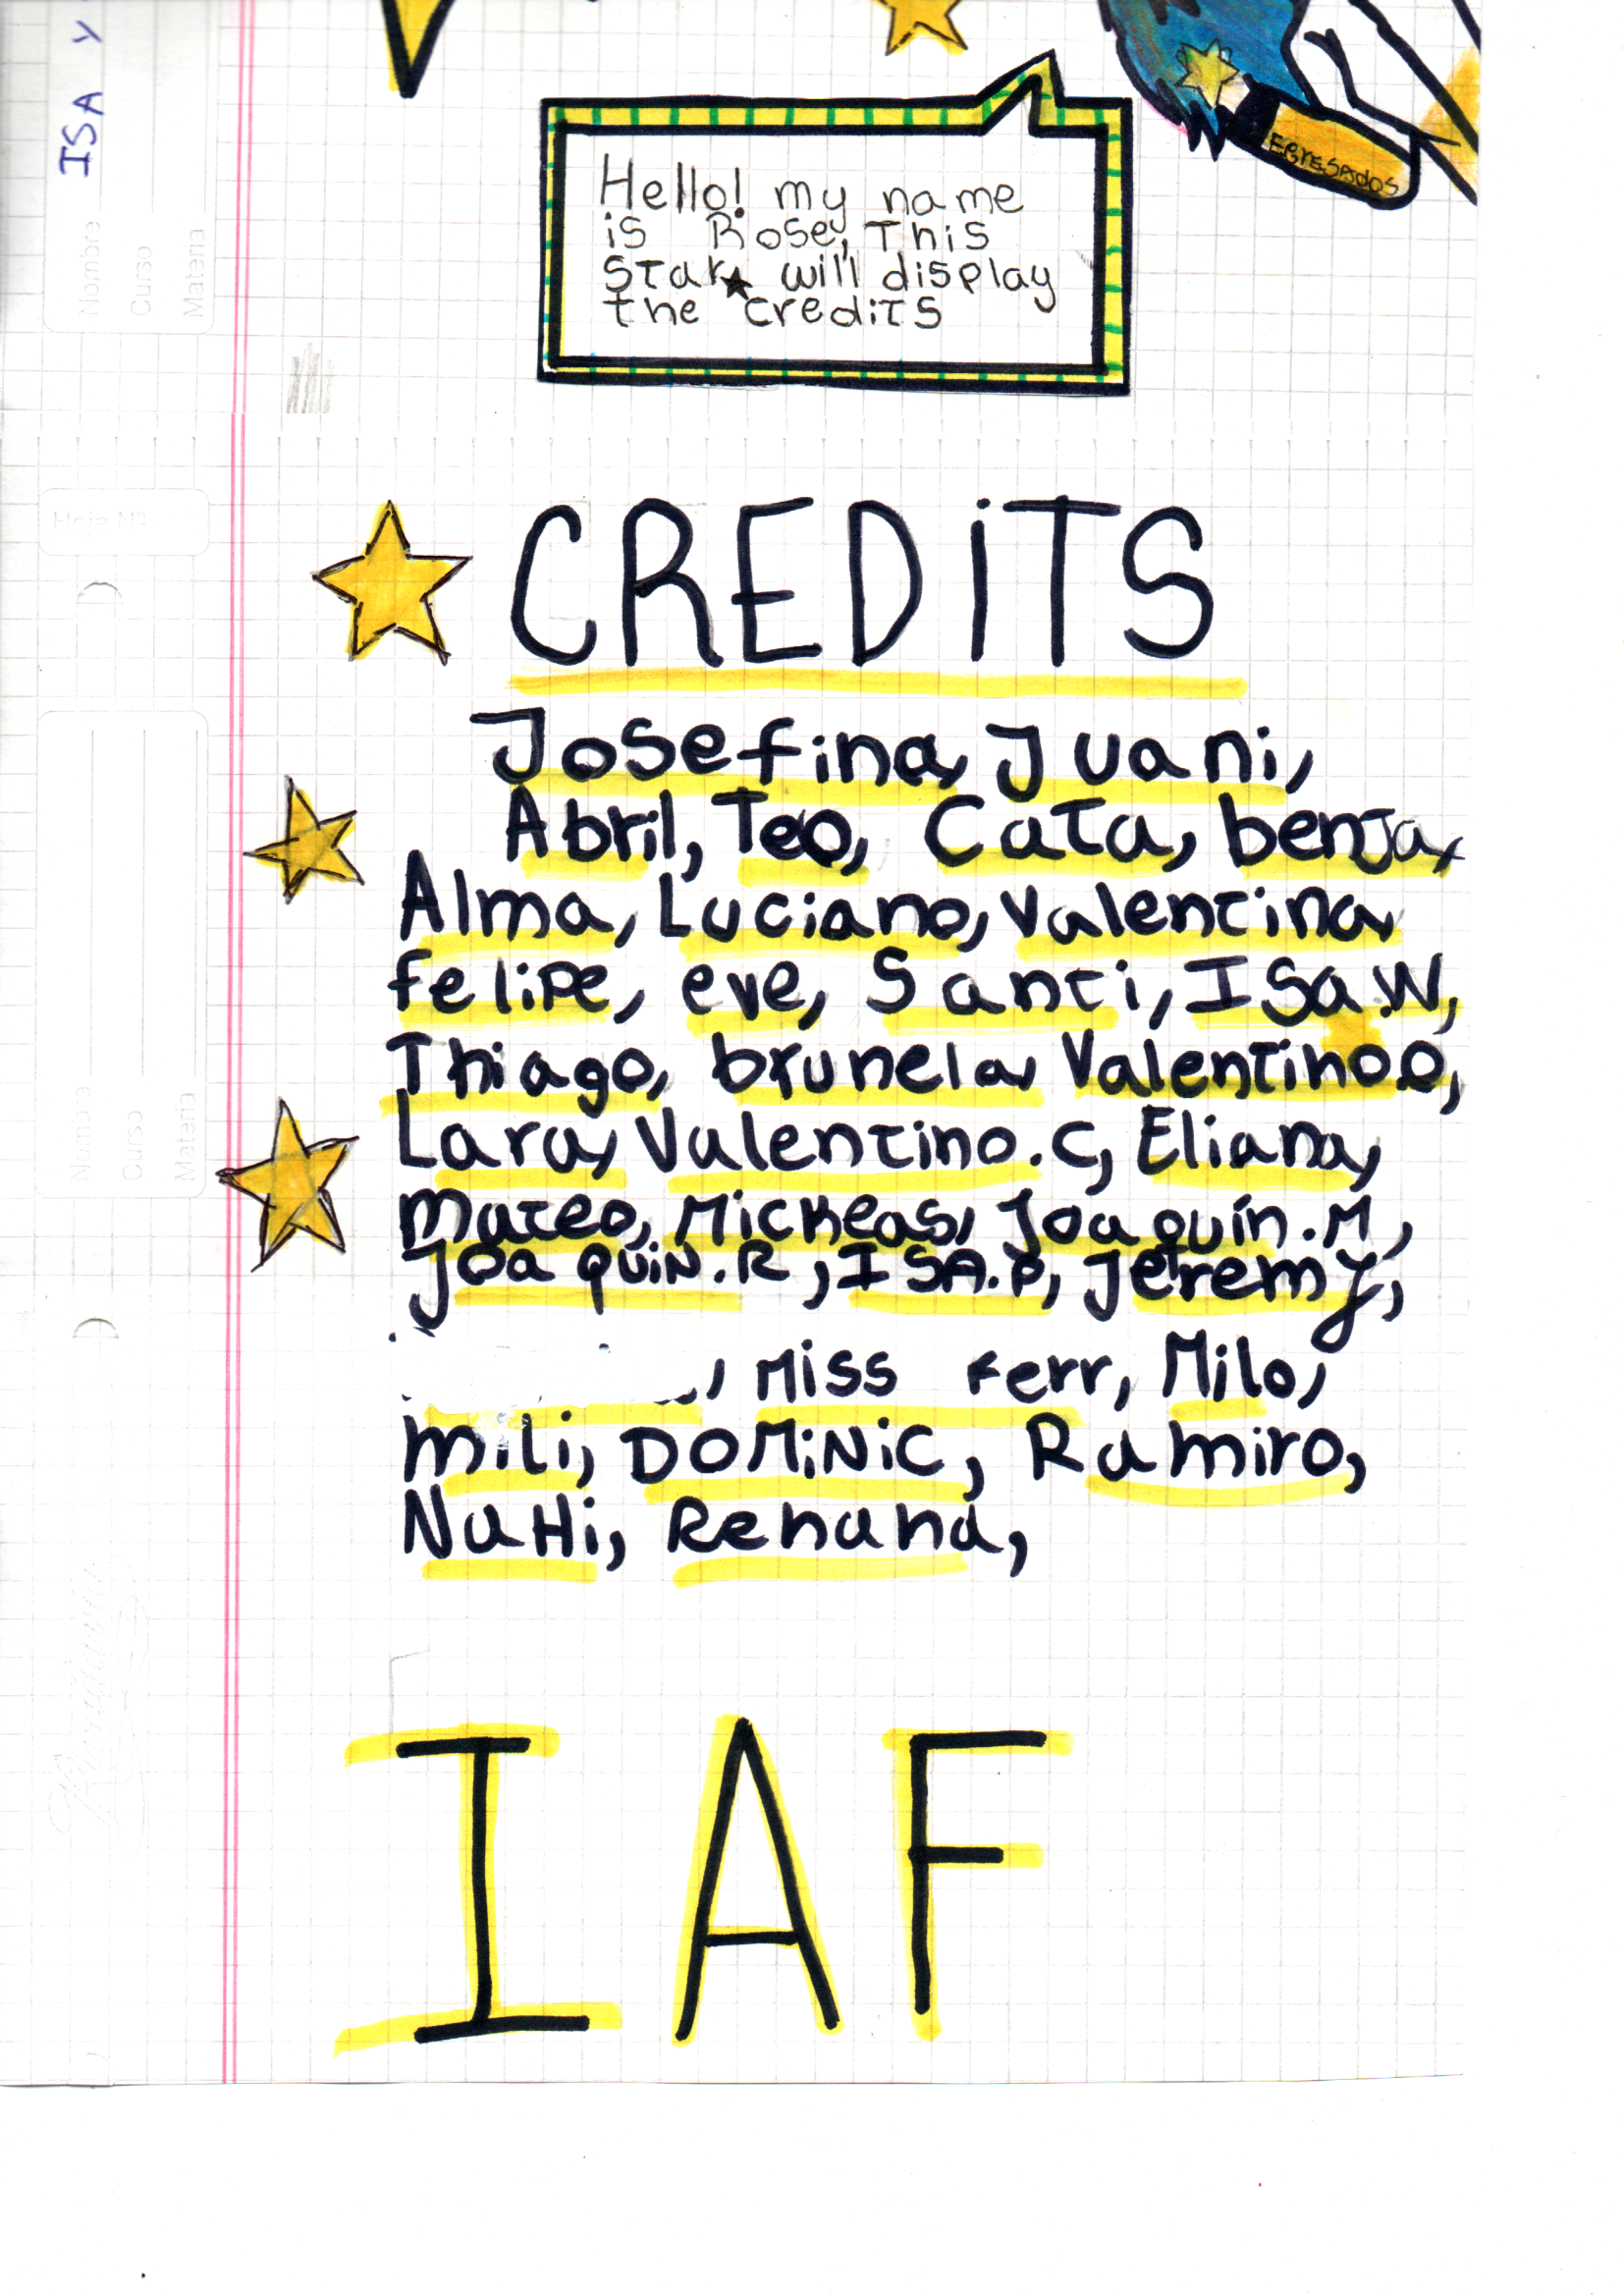 ISA Y
Nombre
Curso
Materia
EgresAdos
Hello! my name
is Rose, This
STar★ will display
the credits
Hoja Nº
CREDiTS
Josefina, Juani,
Abril, Teo, Cata, benja,
Alma, Luciano, Valentina,
felipe, eve, Santi, ISa.W,
Thiago, brunela, Valentino.O,
Lara, Valentino.C, Eliana,
Mateo, Mickeas, Joaquín.M,
Joa quiN.R, ISA.P, Jeremy,
, Miss Ferr, Milo,
Mili, DOMiNiC, Ramiro,
NaHi, Renana,
Nombre
Curso
Materia
Rivadavia
IAF